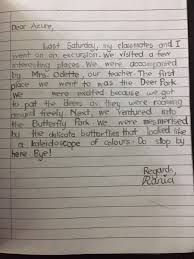 Dear Azure,
Last Saturday, my classmates and I
went on an excursion. We visited a few
interesting places. We were accompanied
by Mrs. Odette, our teacher. The first
place we went to was the Deer Park.
We were excited because we got
to pat the deers as they were roaming
around freely. Next, we ventured into
the Butterfly Park. We were mesmerised
by the delicate butterflies that looked like
a kaleidoscope of colours. Do stop
by here. Bye!
Regards,
Rania